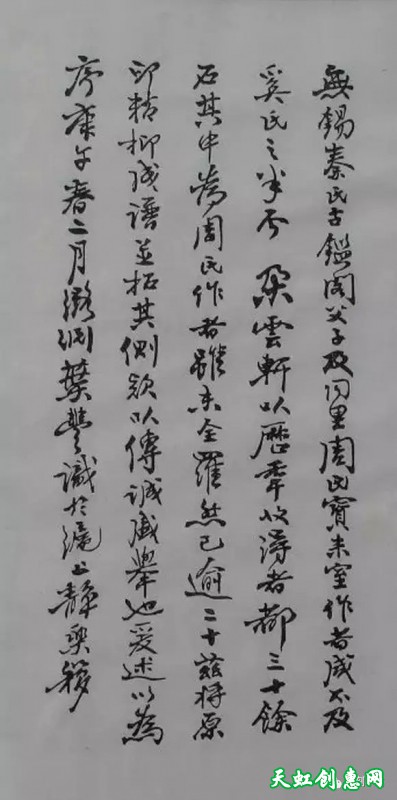 無錫秦氏古鑑閣父子及同里周氏寶米室作者咸不及
奚氏之半爾 朵雲軒以歷年收得者都三十餘
石其中為周氏作者雖未全羅然已逾二十茲將原
印精抑成譜並拓其側款以傳誠盛舉也爰述以為
序庚午春二月潞淵葉豐識於滬上靜樂簃
天虹创惠网